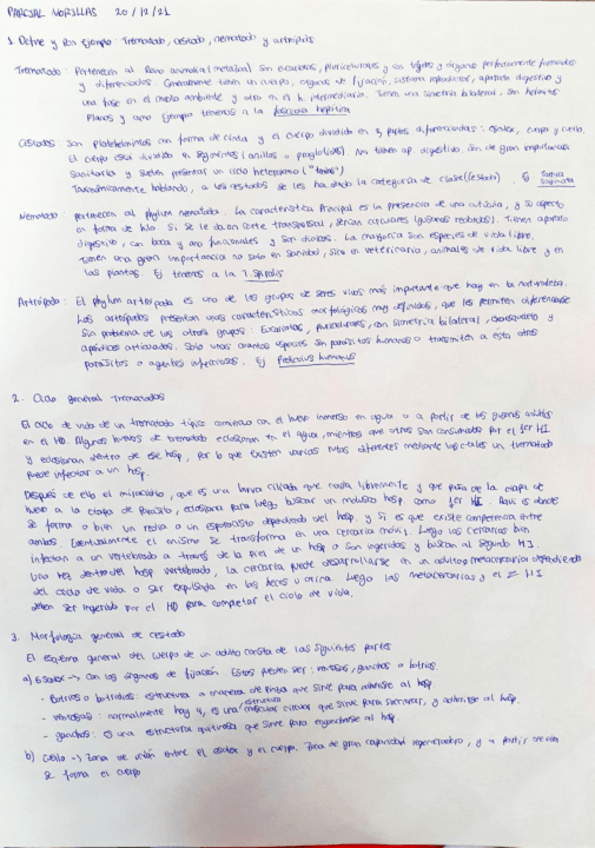 PARCIAL NORILLAS 20/12/21
1. Define y Pon Ejemplo: Trematodo, cestodo, nematodo y artrópodo
Trematodo: Pertenecen al Reino animalia (metazoa) son eucariotas, pluricelulares y con tejidos y órganos perfectamente formados
y diferenciados. Generalmente tienen un cuerpo, órganos de fijación, sistema reproductor, aparato digestivo y
una fase en el medio ambiente y otra en el h. intermediario. Tienen una simetría bilateral, son helmintos
Planos y como ejemplo tenemos a la fasciola hepática
Cestodos: Son Platelmintos con forma de cinta y el cuerpo dividido en 3 partes diferenciadas: escólex, cuerpo y cuello.
El cuerpo está dividido en segmentos (anillos o proglótides). No tienen ap. digestivo. Son de gran importancia
Sanitaria y suelen presentar un ciclo heteroxeno ("tenias")
Taxonómicamente hablando, a los cestodos se les ha dado la categoría de clase (cestoda). Ej Taenia saginata
Nematodo: pertenecen al phylum nematoda. La característica Principal es la presencia de una cutícula, y su aspecto
en forma de hilo. Si se le da un corte transversal, serían circulares (gusanos redondos). Tienen aparato
digestivo, con boca y ano funcionales y son dioicos. La mayoría son especies de vida libre.
Tienen una gran importancia no solo en sanidad, sino en veterinario, animales de vida libre y en
las plantas. Ej tenemos a la T. Spiralis
Artrópodo: El phylum artropoda es uno de los grupos de seres vivos más importante que hay en la naturaleza.
Los artrópodos presentan unas características morfológicas muy definidas, que les permiten diferenciarse
sin problema de los otros grupos: Eucariotas, pluricelulares, con simetría bilateral, exoesqueleto y
apéndices articulados. Solo unas cuantas especies son parásitos humanos o transmiten a ésta otros
parásitos o agentes infecciosos. Ej Pediculus humanus
2. Ciclo general Trematodos
El ciclo de vida de un trematodo típico comienza con el huevo inmerso en agua o a partir de los gusanos adultos
en el HD. Algunos huevos de trematodo eclosionan en el agua, mientras que otros son consumidos por el 1er HI
y eclosionan dentro de ese hosp, por lo que existen varias rutas diferentes mediante las cuales un trematodo
puede infectar a un hosp.
Después de ello el miracidio, que es una larva ciliada que nada libremente y que pasa de la etapa de
huevo a la etapa de parásito, eclosiona para luego buscar un molusco hosp como 1er HI. Aquí es donde
se forma o bien un redia o un esporocisto dependiendo del hosp. y si es que existe competencia entre
ambos. Eventualmente el se transforma en una cercaria móvil. Luego las cercarias bien
infectan a un vertebrado a través de la piel de un hosp o son ingeridos y buscan al segundo HI.
Una vez dentro del hosp vertebrado, la cercaria puede desarrollarse en un adulto o metacercaria dependiendo
del ciclo de vida o ser expulsada en las heces u orina. Luego las metacercarias y el 2º HI
deben ser ingerido por el HD para completar el ciclo de vida.
3. Morfología general de cestodo
El esquema general del cuerpo de un adulto consta de las siguientes partes
a) Escólex -> Con los órganos de fijación. Estos pueden ser: ventosas, ganchos o botrios.
- Botrios o botridios: estructura a manera de pinza que sirve para adherirse al hosp
- ventosas: normalmente hay 4, es una estructura muscular circular que sirve para succionar, y adherirse al hosp.
- ganchos: es una estructura quitinosa que sirve para engancharse al hosp.
b) Cuello -> Zona de unión entre el escólex y el cuerpo. Zona de gran capacidad regeneradora, y a partir de ella
se forma el cuerpo